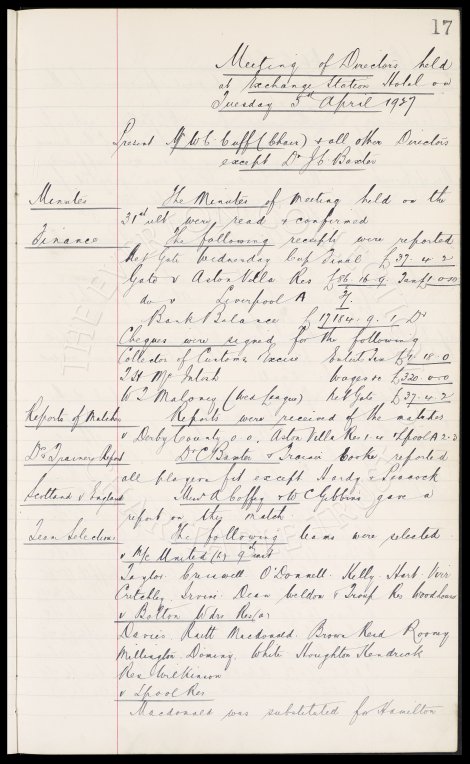 17
Meeting of Directors held
at Exchange Station Hotel on
Tuesday 5th April 1927
Present Mr W C Cuff (Chair) & all other Directors
except Dr J C Baxter
Minutes The Minutes of Meeting held on the
31st ult were read & confirmed
Finance The following receipts were reported
Net Gate Wednesday Cup Final £37. 4. 2
Gate v Aston Villa Res £56. 16. 9.
do v Liverpool A
Bank Balance £17184. 9. 1 Dr
Cheques were signed for the following
Collector of Customs Excise £9. 18. 0
T H McIntosh Wages &c £320. 0. 0
W J Maloney (Wed League) Net Gate £37. 4. 2
Reports of Matches Reports were received of the matches
v Derby County 0. 0. Aston Villa Res 1. 4 & L'pool A 2. 3
Drs Trainers Report Dr C Baxter & Trainer Cooke reported
all players fit except Hardy & Peacock
Scotland v England Messrs A Coffey & W C Gibbins gave a
report on this match
Team Selections The following teams were selected
v M/c United (h) 9th inst
Taylor Cresswell O'Donnell Kelly Hart Virr
Critchley Irvine Dean Weldon & Troup Res Woodhouse
v Bolton Wdrs Res (a)
Davies Raitt Macdonald Brown Reid Rooney
Millington Dominy White Houghton Kendrick
Res Wilkinson
v L'pool Res
Macdonald was substituted for Hamilton